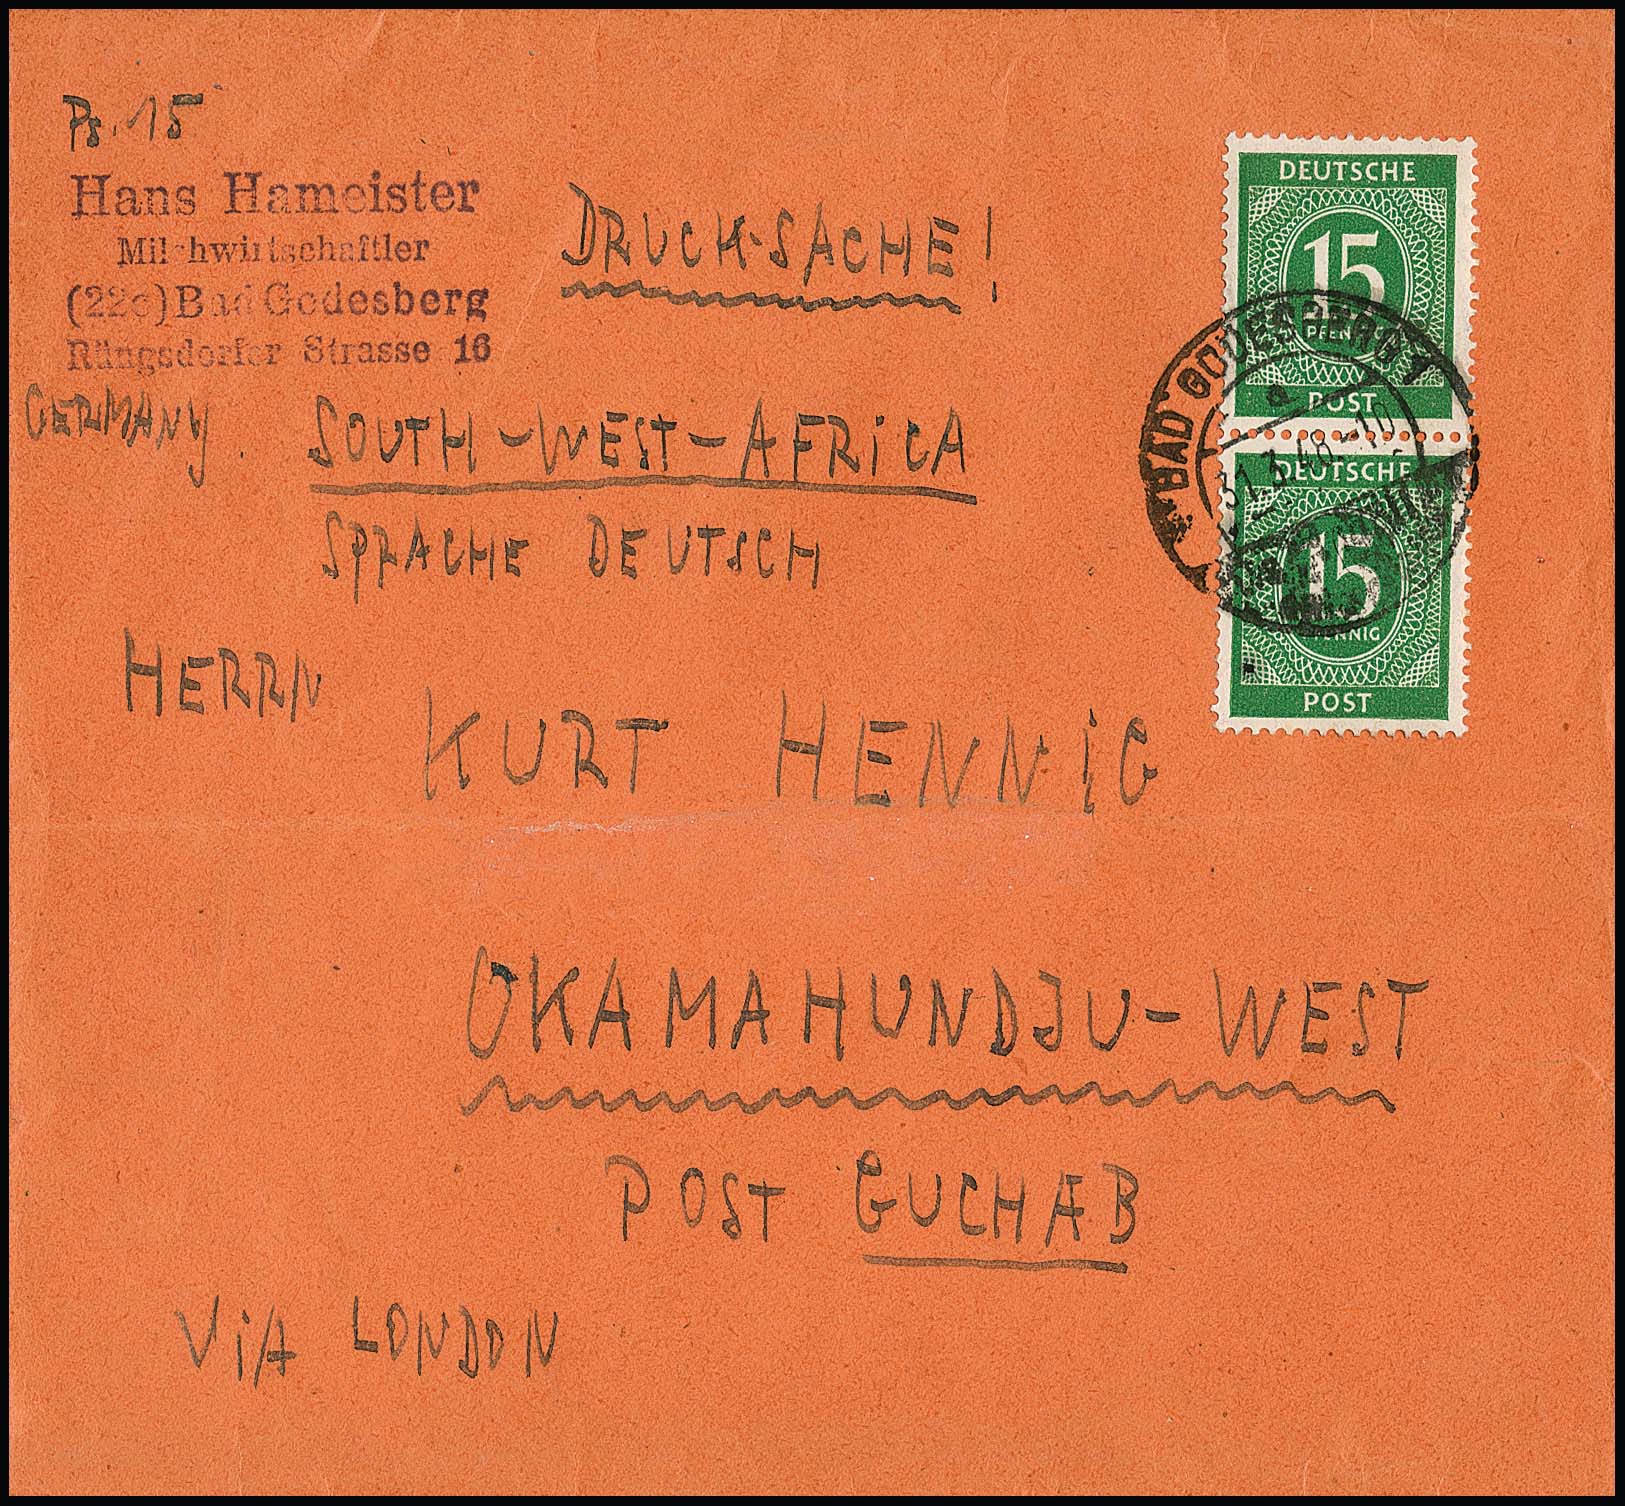 Ps. 15
Hans Hameister
Milchwirtschaftler
(22c) Bad Godesberg
Rüngsdorfer Strasse 16
GERMANY.
DRUCK-SACHE!
DEUTSCHE
15
PFENNIG
POST
BAD GODESBERG 1
a
31.3.48.-10
DEUTSCHE
15
PFENNIG
POST
SOUTH-WEST-AFRiCA
SPRACHE DEUTSCH
HERRN
KURT HENNiG
OKAMAHUNDJU-WEST
POST GUCHAB
ViA LONDON